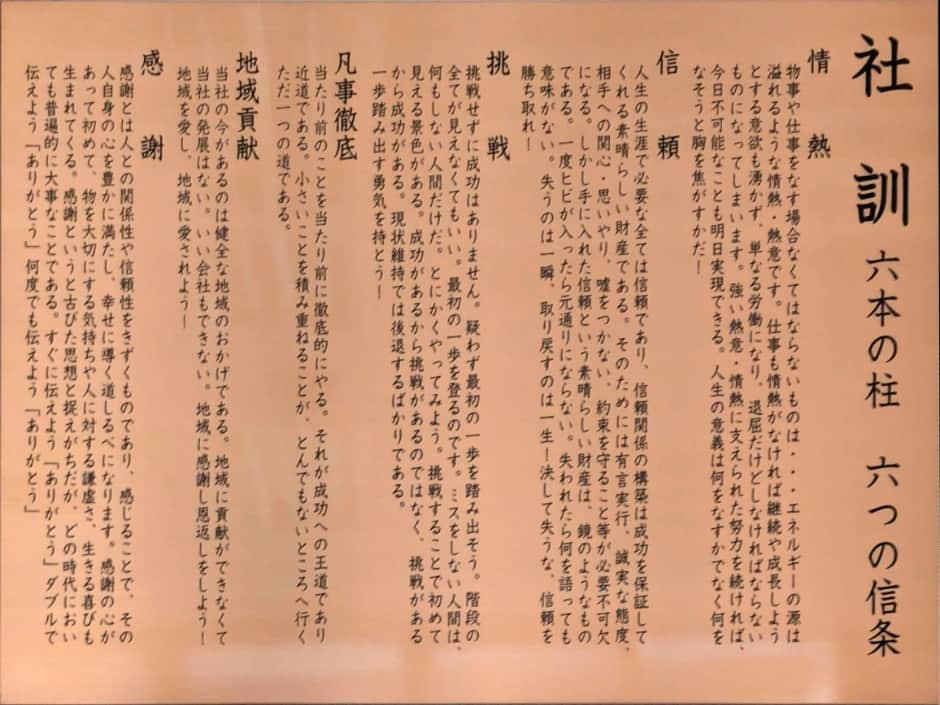 社訓 六本の柱 六つの信条
情熱
物事や仕事をなす場合なくてはならないものは・・・エネルギーの源は
溢れるような情熱・熱意です。仕事も情熱がなければ継続や成長しよう
とする意欲も湧かず、単なる労働になり、退屈だけどしなければならない
ものになってしまいます。強い熱意・情熱に支えられた努力を続ければ、
今日不可能なことも明日実現できる。人生の意義は何をなすかでなく何を
なそうと胸を焦がすかだ！
信頼
人生の生涯で必要な全ては信頼であり、信頼関係の構築は成功を保証して
くれる素晴らしい財産である。そのためには有言実行、誠実な態度、
相手への関心・思いやり、嘘をつかない、約束を守ること等が必要不可欠
になる。しかし手に入れた信頼という素晴らしい財産は、鏡のようなもの
である。一度ヒビが入ったら元通りにならない。失われたら何を語っても
意味がない。失うのは一瞬、取り戻すのは一生！決して失うな、信頼を
勝ち取れ！
挑戦
挑戦せずに成功はありません。疑わず最初の一歩を踏み出そう。階段の
全てが見えなくてもいい。最初の一歩を登るのです。…ミスをしない人間は、
何もしない人間だけだ。とにかくやってみよう。挑戦することで初めて
見える景色がある。成功があるから挑戦があるのではなく、挑戦がある
から成功がある。現状維持では後退するばかりである。
一歩踏み出す勇気を持とう！
凡事徹底
当たり前のことを当たり前に徹底的にやる。それが成功への王道であり
近道である。小さいことを積み重ねることが、とんでもないところへ行く
ただ一つの道である。
地域貢献
当社の今があるのは健全な地域のおかげである。地域に貢献ができなくて
当社の発展はない。いい会社もできない。地域に感謝し恩返しをしよう！
地域を愛し、地域に愛されよう！
感謝
感謝とは人との関係性や信頼性をきずくものであり、感じることで、その
人自身の心を豊かに満たし、幸せに導く道しるべになります。感謝の心が
あって初めて、物を大切にする気持ちや人に対する謙虚さ、生きる喜びも
生まれてくる。感謝というと古びた思想と捉えがちだが、どの時代におい
ても普遍的に大事なことである。すぐに伝えよう「ありがとう」ダブルで
伝えよう「ありがとう」何度でも伝えよう「ありがとう」